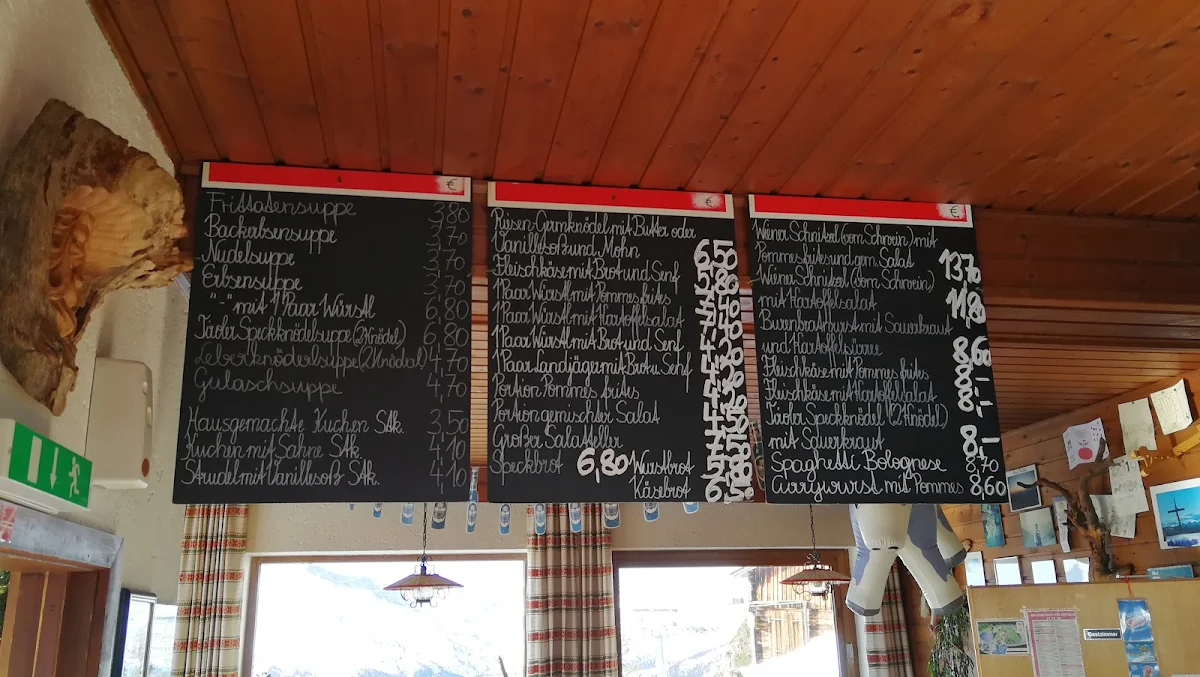 €
Frittatensuppe 3,80
Backerbsensuppe 3,70
Nudelsuppe 3,70
Erbsensuppe 3,70
"-" mit 1 Paar Würstl 6,80
Tiroler Speckknödelsuppe (2 Knödel) 6,80
Leberknödelsuppe (2 Knödel) 4,70
Gulaschsuppe 4,70
Hausgemachte Kuchen Stk. 3,50
Kuchen mit Sahne Stk. 4,10
Strudel mit Vanillesoß Stk. 4,10
€
Riesen-Germknödel mit Butter oder
Vanillesoß und Mohn
Fleischkäse mit Brot und Senf
1 Paar Würstl mit Pommes frites
1 Paar Würstl mit Kartoffelsalat
1 Paar Würstl mit Brot und Senf
1 Paar Landjäger mit Brot u. Senf
Portion Pommes frites
Portion gemischter Salat
Großer Salatteller
Speckbrot 6,80 Wurstbrot
Käsebrot
€
Wiener Schnitzel (vom Schwein) mit
Pommes frites und gem. Salat 13,70
Wiener Schnitzel (vom Schwein)
mit Kartoffelsalat 11,80
Bauernbratwurst mit Sauerkraut
und Kartoffelpüree 8,60
Fleischkäse mit Pommes frites
Fleischkäse mit Kartoffelsalat
Tiroler Speckknödel (2 Knödel)
mit Sauerkraut 8,-
Spaghetti Bolognese 8,70
Currywurst mit Pommes 8,60